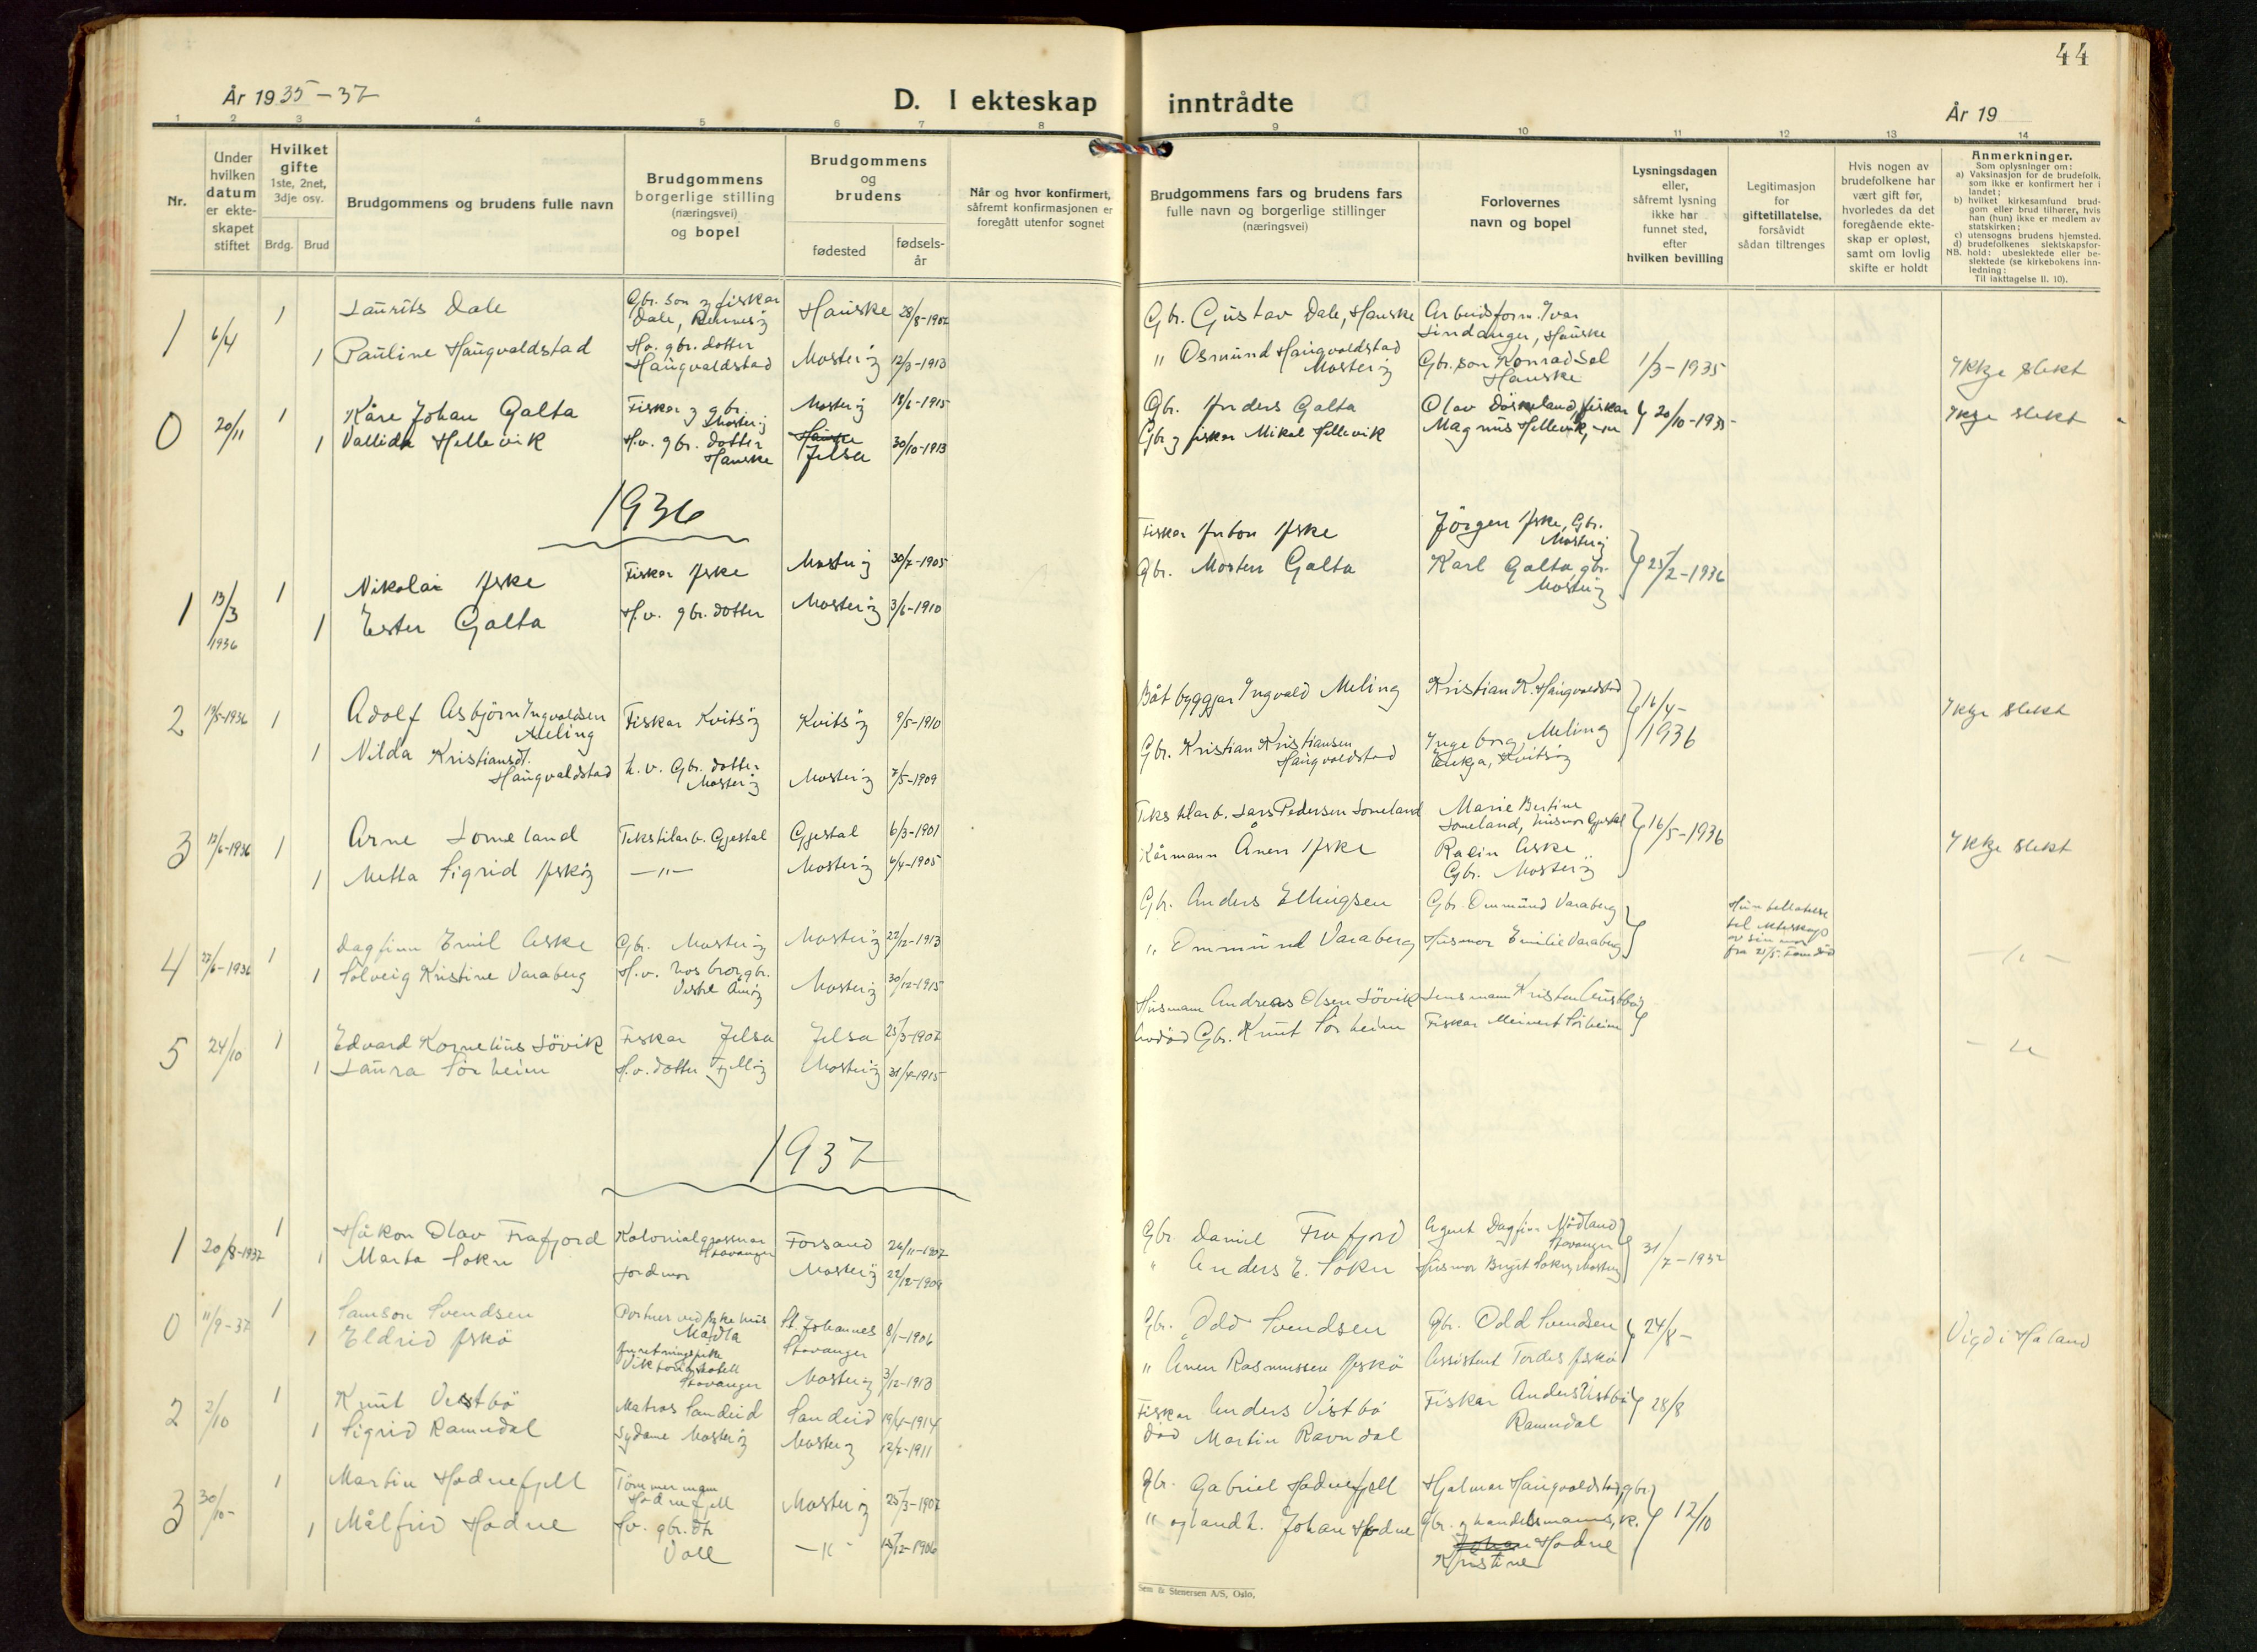 44
År 1935-37
D. I ekteskap inntrådte
År 19
1 2 3 4 5 6 7 8 9 10 11 12 13 14
Nr.
Under
hvilken
datum
er ekte-
skapet
stiftet
Hvilket
gifte
1ste, 2net,
3dje osv.
Brdg. Brud
Brudgommens og brudens fulle navn
Brudgommens
borgerlige stilling
(næringsvei)
og bopel
Brudgommens
og
brudens
fødested
fødsels-
år
Når og hvor konfirmert,
såfremt konfirmasjonen er
foregått utenfor sognet
Brudgommens fars og brudens fars
fulle navn og borgerlige stillinger
(næringsvei)
Forlovernes
navn og bopel
Lysningsdagen
eller,
såfremt lysning
ikke har
funnet sted,
efter
hvilken bevilling
Legitimasjon
for
giftetillatelse,
forsåvidt
sådan tiltrenges
Hvis nogen av
brudefolkene har
vært gift før,
hvorledes da det
foregående ekte-
skap er opløst,
samt om lovlig
skifte er holdt
Anmerkninger.
Som oplysninger om:
a) Vaksinasjon for de brudefolk,
som ikke er konfirmert her i
landet;
b) hvilket kirkesamfund brud-
gom eller brud tilhører, hvis
han (hun) ikke er medlem av
statskirken;
c) utensogns brudens hjemsted.
d) brudefolkenes slektskapsfor-
NB. hold: ubeslektede eller be-
slektede (se kirkebokens inn-
ledning:
Til iakttagelse II. 10).
1 6/4 1 Laurits Dale Gbr. son og fiskar
Dale, Rennesøy Hauske 28/8-1902 Gbr. Gustav Dale, Hauske Arbeidsform. Ivar
Lindanger, Hauske
1 Pauline Haugvaldstad Hv. gbr. dotter
Haugvaldstad Mosterøy 12/3-1913 " Osmund Haugvaldstad
Mosterøy Gbr. son Konrad Sel
Hauske 1/3-1935 Ikkje slekt
0 20/11 1 Kåre Johan Galta Fiskar og gbr.
Mosterøy Mosterøy 18/6-1915 Gbr. Anders Galta Olav Døskeland, fiskar 20/10-1935 Ikkje slekt
1 Vallida Hellevik H.v. gbr. dotter
Hauske Hauske
Jelsa 30/10-1913 Gbr og fiskar Mikal Hellevik Magnus Hellevik
1936
1 13/3
1936 1 Nikolai Aske Fiskar Aske Mosterøy 30/7-1905 Fiskar Anton Aske Jørgen Aske, Gbr.
Mosterøy
1 Ester Galta H.v. gbr. dotter Mosterøy 3/6-1910 Gbr. Morten Galta Karl Galta gbr.
Mosterøy 25/2-1936
2 19/5-1936 1 Adolf Asbjørn Ingvaldsen
Meling Fiskar Kvitsøy Kvitsøy 9/5-1910 Båtbyggjar Ingvald Meling Kristian K. Haugvaldstad 16/4-
1936 Ikkje slekt
1 Nilda Kristiansdt.
Haugvaldstad h.v. Gbr. dotter
Mosterøy Mosterøy 7/5-1909 Gbr. Kristian Kristiansen
Haugvaldstad Ingeborg Meling
Enkja, Kvitsøy
3 12/6-1936 1 Arne Lomeland Tekstilarb. Gjestal Gjestal 6/3-1901 Tekstilarb. Lars Pedersen Lomeland Marie Bertine
Lomeland, husmor Gjestal 16/5-1936 Ikkje slekt
1 Metta Sigrid Askøy — " — Mosterøy 6/4-1905 Kårmann Ånen Aske
Aske
Gbr. Mosterøy
4 27/6-1936 1 Dagfinn Emil Aske Gbr. Mosterøy Mosterøy 27/12-1913 Gbr. Anders Ellingsen Gbr. Ommund Varaberg
1 Solveig Kristine Varaberg H.v. hos bror, gbr.
Vestre Åmøy Mosterøy 30/12-1915 " Ommund Varaberg Husmor Emilie Varaberg
5 24/10 1 Edvard Kornelius Løvik Fiskar Jelsa Jelsa 25/3-1907 Husmann Andreas Olsen Løvik Lensmann Kristen Austbø
1 Laura Sørheim H.v. dotter Fjølløy Mosterøy 31/4-1915 Avdød Gbr. Knut Sørheim Fiskar Meinert Sørheim
1937
1 20/8-1937 1 Håkon Olav Frafjord Kolonialgrossear
Stavanger Forsand 26/11-1907 Gbr Daniel Frafjord Agent Dagfinn Mådland
Stavanger 31/7-1937
1 Marta Sokn Jordmor Mosterøy 22/12-1909 " Anders E. Sokn Husmor Birgit Sokn, Mosterøy
0 11/9-37 1 Samson Svendsen Portner ved sjukehus
Madla St. Johannes
Stavanger 8/1-1906 Gbr. Odd Svendsen Gbr. Odd Svendsen 24/8- Vigd i Håland
1 Eldrid Askø
Viktoriahotell
Stavanger Mosterøy 3/12-1913 " Ånen Rasmussen Askø Assistent Tordis Askø
2 2/10 1 Knut Vestbø Matros Sandeid Sandeid 19/4-1914 Fiskar Anders Vistbø Fiskar Anders Vistbø 28/8
1 Sigrid Ramndal Sydame Mosterøy Mosterøy 12/7-1911 Død Martin Ravndal Ramndal
3 30/10- 1 Martin Hodnefjell Tømmermann
Hodnefjell Mosterøy 25/3-1907 Gbr. Gabriel Hodnefjell Hjalmar Haugvaldstad, gbr. 12/10
1 Målfrid Hodne Hv. gbr. dtr
Voll — " — 15/12-1906 " og landh. Johan Hodne Gbr. og handelsmanns, k.
Johan Hodne
Kristine
Sem & Stenersen A/S, Oslo.